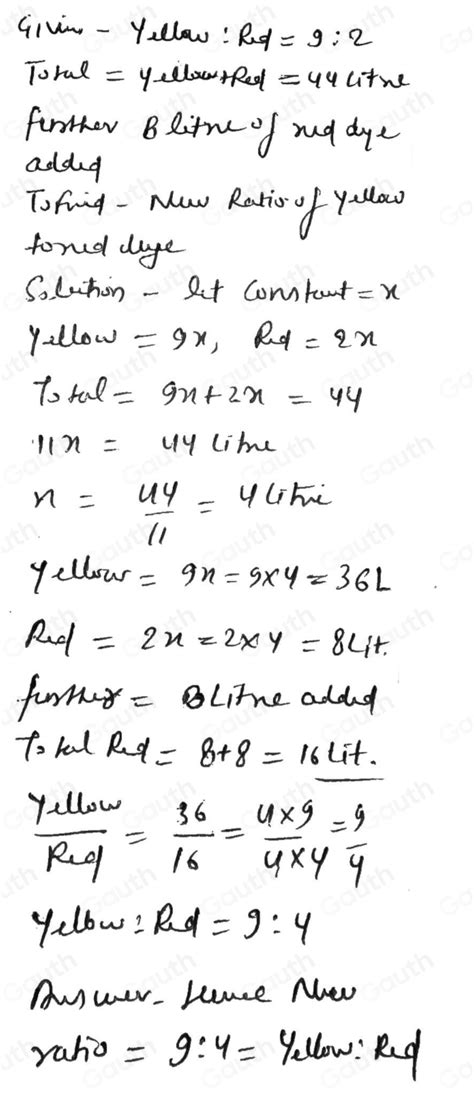 Given - Yellow : Red = 9 : 2
Total = Yellow+Red = 44 Litre
further 8 litre of red dye
added
To find - New Ratio of Yellow
to red dye
Solution - let constant = x
Yellow = 9x, Red = 2x
Total = 9x+2x = 44
11x = 44 Litre
x = 44/11 = 4 Litre
Yellow = 9x = 9x4 = 36L
Red = 2x = 2x4 = 8 Lit.
further = 8 Litre added
Total Red = 8+8 = 16 Lit.
Yellow/Red = 36/16 = 4x9/4x4 = 9/4
Yellow : Red = 9 : 4
Answer - Hence New
ratio = 9:4 = Yellow : Red